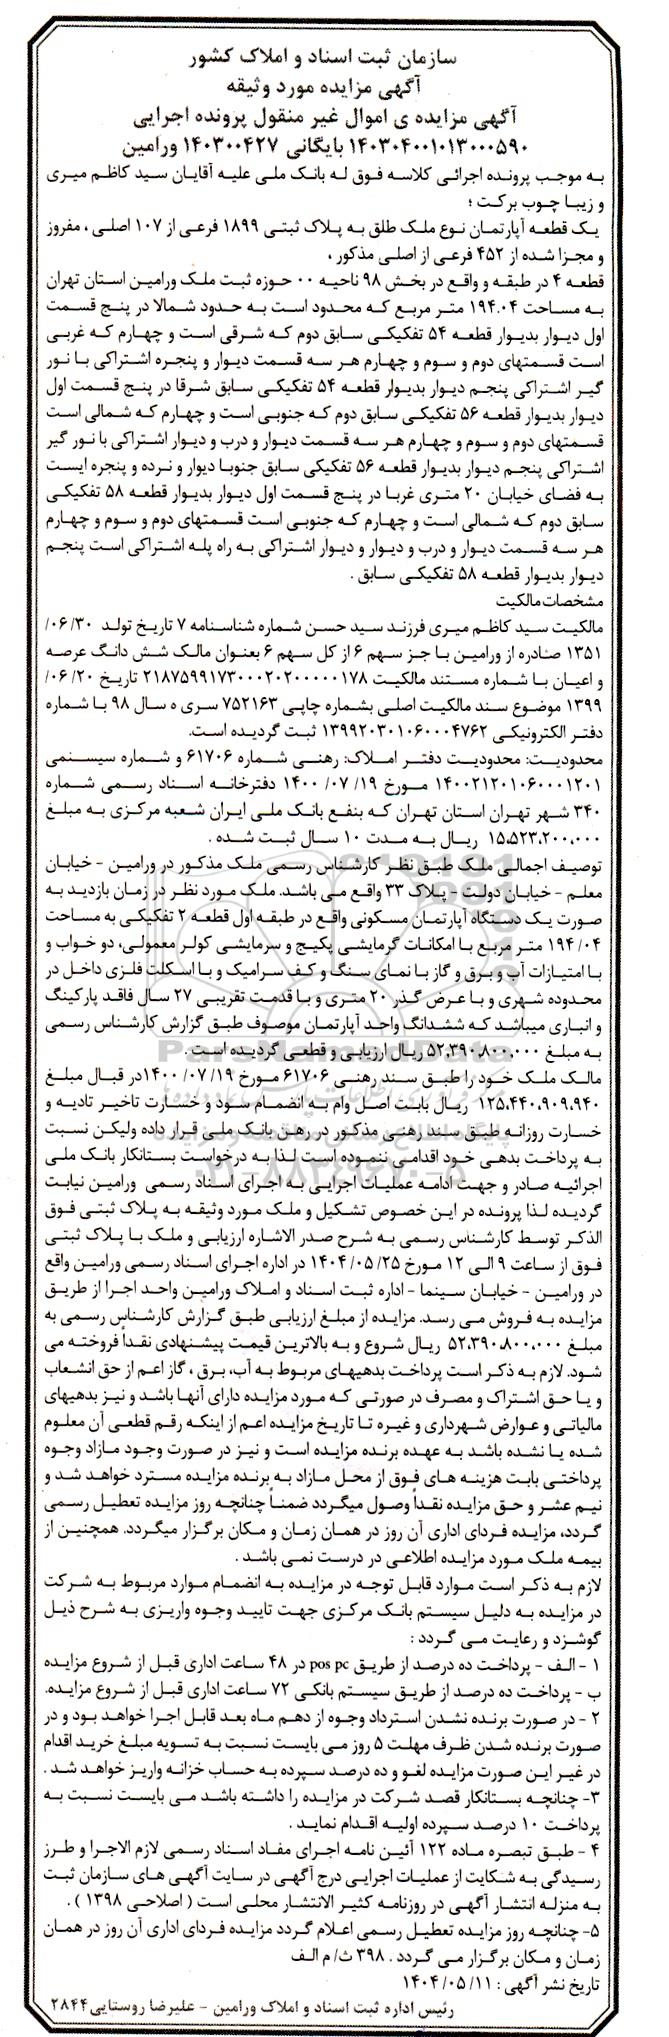 سازمان ثبت اسناد و املاک کشور
آگهی مزایده مورد وثیقه
آگهی مزایده ی اموال غیر منقول پرونده اجرایی
۱۴۰۳۰۴۰۰۱۰۱۳۰۰۰۵۹۰ بایگانی ۱۴۰۳۰۰۴۲۷ ورامین
به موجب پرونده اجرائی کلاسه فوق له بانک ملی علیه آقایان سید کاظم میری
و زیبا چوب برکت ؛
یک قطعه آپارتمان نوع ملک طلق به پلاک ثبتی ۱۸۹۹ فرعی از ۱۰۷ اصلی ، مفروز
و مجزا شده از ۴۵۲ فرعی از اصلی مذکور ،
قطعه ۴ در طبقه و واقع در بخش ۹۸ ناحیه ۰۰ حوزه ثبت ملک ورامین استان تهران
به مساحت ۱۹۴.۰۴ متر مربع که محدود است به حدود شمالا در پنج قسمت
اول دیوار بدیوار قطعه ۵۴ تفکیکی سابق دوم که شرقی است و چهارم که غربی
است قسمتهای دوم و سوم و چهارم هر سه قسمت دیوار و پنجره اشتراکی با نور
گیر اشتراکی پنجم دیوار بدیوار قطعه ۵۴ تفکیکی سابق شرقا در پنج قسمت اول
دیوار بدیوار قطعه ۵۶ تفکیکی سابق دوم که جنوبی است و چهارم که شمالی است
قسمتهای دوم و سوم و چهارم هر سه قسمت دیوار و درب و دیوار اشتراکی با نور گیر
اشتراکی پنجم دیوار بدیوار قطعه ۵۶ تفکیکی سابق جنوبا دیوار و نرده و پنجره ایست
به فضای خیابان ۲۰ متری غربا در پنج قسمت اول دیوار بدیوار قطعه ۵۸ تفکیکی
سابق دوم که شمالی است و چهارم که جنوبی است قسمتهای دوم و سوم و چهارم
هر سه قسمت دیوار و درب و دیوار و دیوار اشتراکی به راه پله اشتراکی است پنجم
دیوار بدیوار قطعه ۵۸ تفکیکی سابق .
مشخصات مالکیت
مالکیت سید کاظم میری فرزند سید حسن شماره شناسنامه ۷ تاریخ تولد ۰۶/۳۰/
۱۳۵۱ صادره از ورامین با جز سهم ۶ از کل سهم ۶ بعنوان مالک شش دانگ عرصه
و اعیان با شماره مستند مالکیت ۲۱۸۷۵۹۹۱۷۳۰۰۰۲۰۲۰۰۰۰۰۱۷۸ تاریخ ۰۶/۲۰/
۱۳۹۹ موضوع سند مالکیت اصلی بشماره چاپی ۷۵۲۱۶۳ سری ه سال ۹۸ با شماره
دفتر الکترونیکی ۱۳۹۹۲۰۳۰۱۰۶۰۰۰۴۷۶۲ ثبت گردیده است.
محدودیت: محدودیت دفتر املاک: رهنی شماره ۶۱۷۰۶ و شماره سیستمی
۱۴۰۰۲۱۲۰۱۰۶۰۰۰۱۲۰۱ مورخ ۱۹/ ۰۷/ ۱۴۰۰ دفترخانه اسناد رسمی شماره
۳۴۰ شهر تهران استان تهران که بنفع بانک ملی ایران شعبه مرکزی به مبلغ
۱۵،۵۲۳،۲۰۰،۰۰۰ ریال به مدت ۱۰ سال ثبت شده .
توصیف اجمالی ملک طبق نظر کارشناس رسمی ملک مذکور در ورامین - خیابان
معلم - خیابان دولت - پلاک ۳۳ واقع می باشد. ملک مورد نظر در زمان بازدید به
صورت یک دستگاه آپارتمان مسکونی واقع در طبقه اول قطعه ۲ تفکیکی به مساحت
۱۹۴/۰۴ متر مربع با امکانات گرمایشی پکیج و سرمایشی کولر معمولی، دو خواب و
با امتیازات آب و برق و گاز با نمای سنگ و کف سرامیک و با اسکلت فلزی داخل در
محدوده شهری و با عرض گذر ۲۰ متری و با قدمت تقریبی ۲۷ سال فاقد پارکینگ
و انباری میباشد که ششدانگ واحد آپارتمان موصوف طبق گزارش کارشناس رسمی
به مبلغ ۵۲،۳۹۰،۸۰۰،۰۰۰ ریال ارزیابی و قطعی گردیده است.
مالک ملک خود را طبق سند رهنی ۶۱۷۰۶ مورخ ۱۹/ ۰۷/ ۱۴۰۰در قبال مبلغ
۱۲۵،۴۴۰،۹۰۹،۹۴۰ ریال بابت اصل وام به انضمام سود و خسارت تاخیر تادیه و
خسارت روزانه طبق سند رهنی مذکور در رهن بانک ملی قرار داده ولیکن نسبت
به پرداخت بدهی خود اقدامی ننموده است لذا به درخواست بستانکار بانک ملی
اجرائیه صادر و جهت ادامه عملیات اجرایی به اجرای اسناد رسمی ورامین نیابت
گردیده لذا پرونده در این خصوص تشکیل و ملک مورد وثیقه به پلاک ثبتی فوق
الذکر توسط کارشناس رسمی به شرح صدر الاشاره ارزیابی و ملک با پلاک ثبتی
فوق از ساعت ۹ الی ۱۲ مورخ ۲۵/ ۰۵/ ۱۴۰۴ در اداره اجرای اسناد رسمی ورامین واقع
در ورامین - خیابان سینما - اداره ثبت اسناد و املاک ورامین واحد اجرا از طریق
مزایده به فروش می رسد. مزایده از مبلغ ارزیابی طبق گزارش کارشناس رسمی به
مبلغ ۵۲،۳۹۰،۸۰۰،۰۰۰ ریال شروع و به بالاترین قیمت پیشنهادی نقداً فروخته می
شود. لازم به ذکر است پرداخت بدهیهای مربوط به آب، برق ، گاز اعم از حق انشعاب
و یا حق اشتراک و مصرف در صورتی که مورد مزایده دارای آنها باشد و نیز بدهیهای
مالیاتی و عوارض شهرداری و غیره تا تاریخ مزایده اعم از اینکه رقم قطعی آن معلوم
شده یا نشده باشد به عهده برنده مزایده است و نیز در صورت وجود مازاد وجوه
پرداختی بابت هزینه های فوق از محل مازاد به برنده مزایده مسترد خواهد شد و
نیم عشر و حق مزایده نقداً وصول میگردد ضمناً چنانچه روز مزایده تعطیل رسمی
گردد، مزایده فردای اداری آن روز در همان زمان و مکان برگزار میگردد. همچنین از
بیمه ملک مورد مزایده اطلاعی در درست نمی باشد .
لازم به ذکر است موارد قابل توجه در مزایده به انضمام موارد مربوط به شرکت
در مزایده به دلیل سیستم بانک مرکزی جهت تایید وجوه واریزی به شرح ذیل
گوشزد و رعایت می گردد :
۱ - الف - پرداخت ده درصد از طریق pos pc در ۴۸ ساعت اداری قبل از شروع مزایده
ب - پرداخت ده درصد از طریق سیستم بانکی ۷۲ ساعت اداری قبل از شروع مزایده.
۲ - در صورت برنده نشدن استرداد وجوه از دهم ماه بعد قابل اجرا خواهد بود و در
صورت برنده شدن ظرف مهلت ۵ روز می بایست نسبت به تسویه مبلغ خرید اقدام
در غیر این صورت مزایده لغو و ده درصد سپرده به حساب خزانه واریز خواهد شد .
۳- چنانچه بستانکار قصد شرکت در مزایده را داشته باشد می بایست نسبت به
پرداخت ۱۰ درصد سپرده اولیه اقدام نماید .
۴ - طبق تبصره ماده ۱۲۲ آئین نامه اجرای مفاد اسناد رسمی لازم الاجرا و طرز
رسیدگی به شکایت از عملیات اجرایی درج آگهی در سایت آگهی های سازمان ثبت
به منزله انتشار آگهی در روزنامه کثیر الانتشار محلی است ( اصلاحی ۱۳۹۸ ) .
۵- چنانچه روز مزایده تعطیل رسمی اعلام گردد مزایده فردای اداری آن روز در همان
زمان و مکان برگزار می گردد . ۳۹۸ ث/ م الف
تاریخ نشر آگهی : ۱۱/ ۰۵/ ۱۴۰۴
رئیس اداره ثبت اسناد و املاک ورامین - علیرضا روستایی ۲۸۴۴